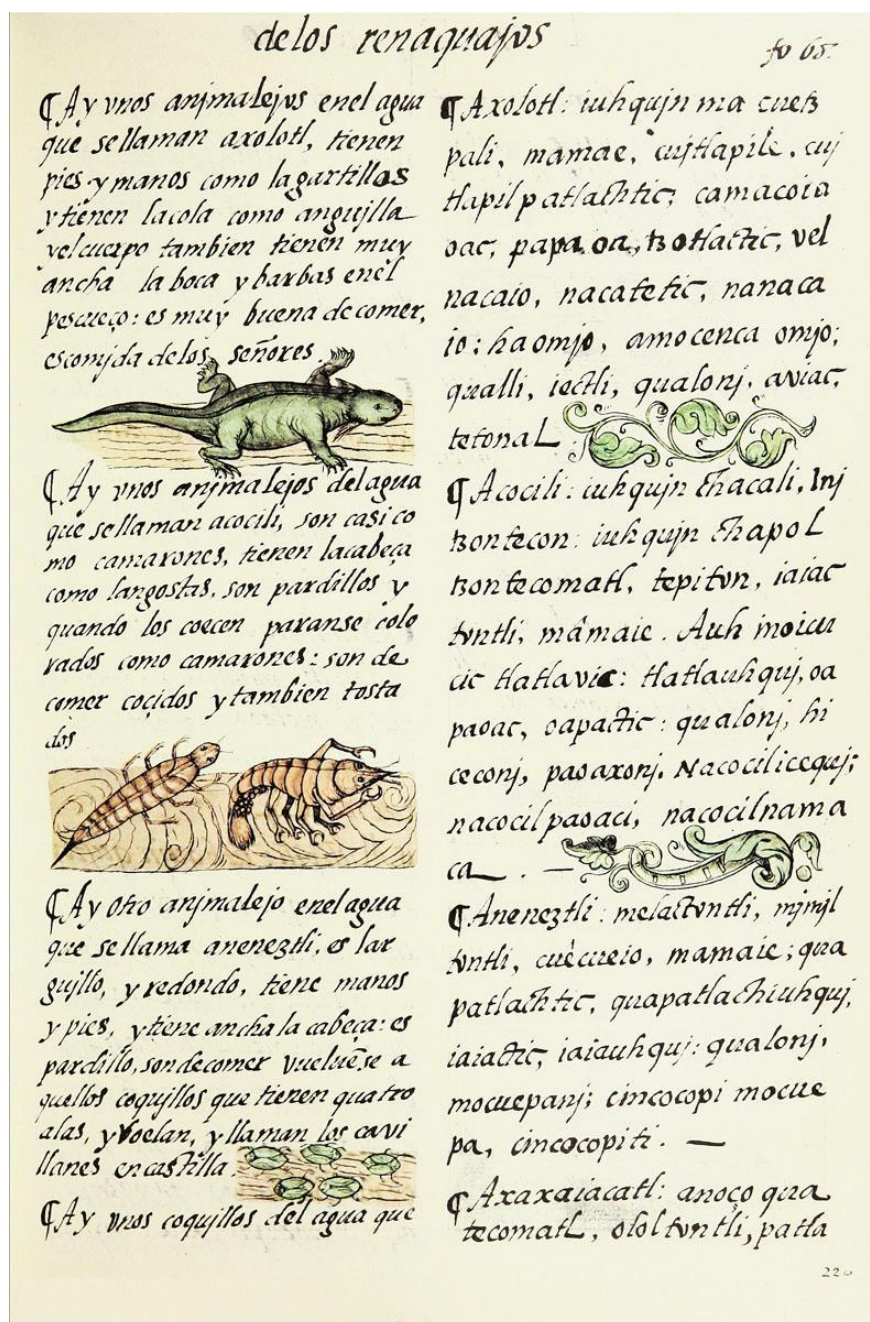 de los renaquajos
fo 65.
¶ Ay vnos anjmalejos enel agua
que se llaman axolotl, tienen
pies y manos como lagartillos
y tienen la cola como anguilla
y el cuerpo tambien tienen muy
ancha la boca y barbas enel
pescueço: es muy buena de comer,
es comjda delos señores.
¶ Ay vnos anjmalejos del agua
que se llaman acocili, son casi co
mo camarones, tienen la cabeça
como langostas, son pardillos y
quando los coecen paranse colo
rados como camarones: son de
comer coçidos y tambien tosta
dos
¶ Ay otro anjmalejo enel agua
que se llama aneneztli, es lar
guillo, y redondo, tiene manos
y pies, y tiene ancha la cabeça: es
pardillo, son de comer vueluēse a
quellos coquillos que tienen quatro
alas, y voelan, y llaman los cavi
llanes en castilla.
¶ Ay vnos coquillos del agua que
¶ Axolotl: iuhqujn ma cuetz
pali, mamae, cujtlapile, cuj
tlapilpatlachtic; camacoia
oac, papa oa, tzotlactic, vel
nacaio, nacatetic, nanaca
io: haomjo, amocenca omjo;
qualli, iectli, qualonj, aviac,
tetonal
¶ Acocili: iuhqujn chacali, Inj
tzontecon: iuhqujn chapol
tzontecomatl, tepiton, iaiac
tontli, mâmaie. Auh inoicu
cic tlatlavic: tlatlauhquj, oa
paoac, oapactic: qualonj, hi
ceconj, paoaxonj. Nacocilicequj;
nacocilpaoaci, nacocilnama
ca
¶ Aneneztli: melactontli, mjmjl
tontli, cuêcueio, mamaie; qua
patlachtic, quapatlachiuhquj,
iaiactic, iaiauhquj: qualonj,
mocuepanj; cincocopi mocue
pa, cincocopiti.
¶ Axaxaiacatl: anoço qua
tecomatl, ololtontli, patla